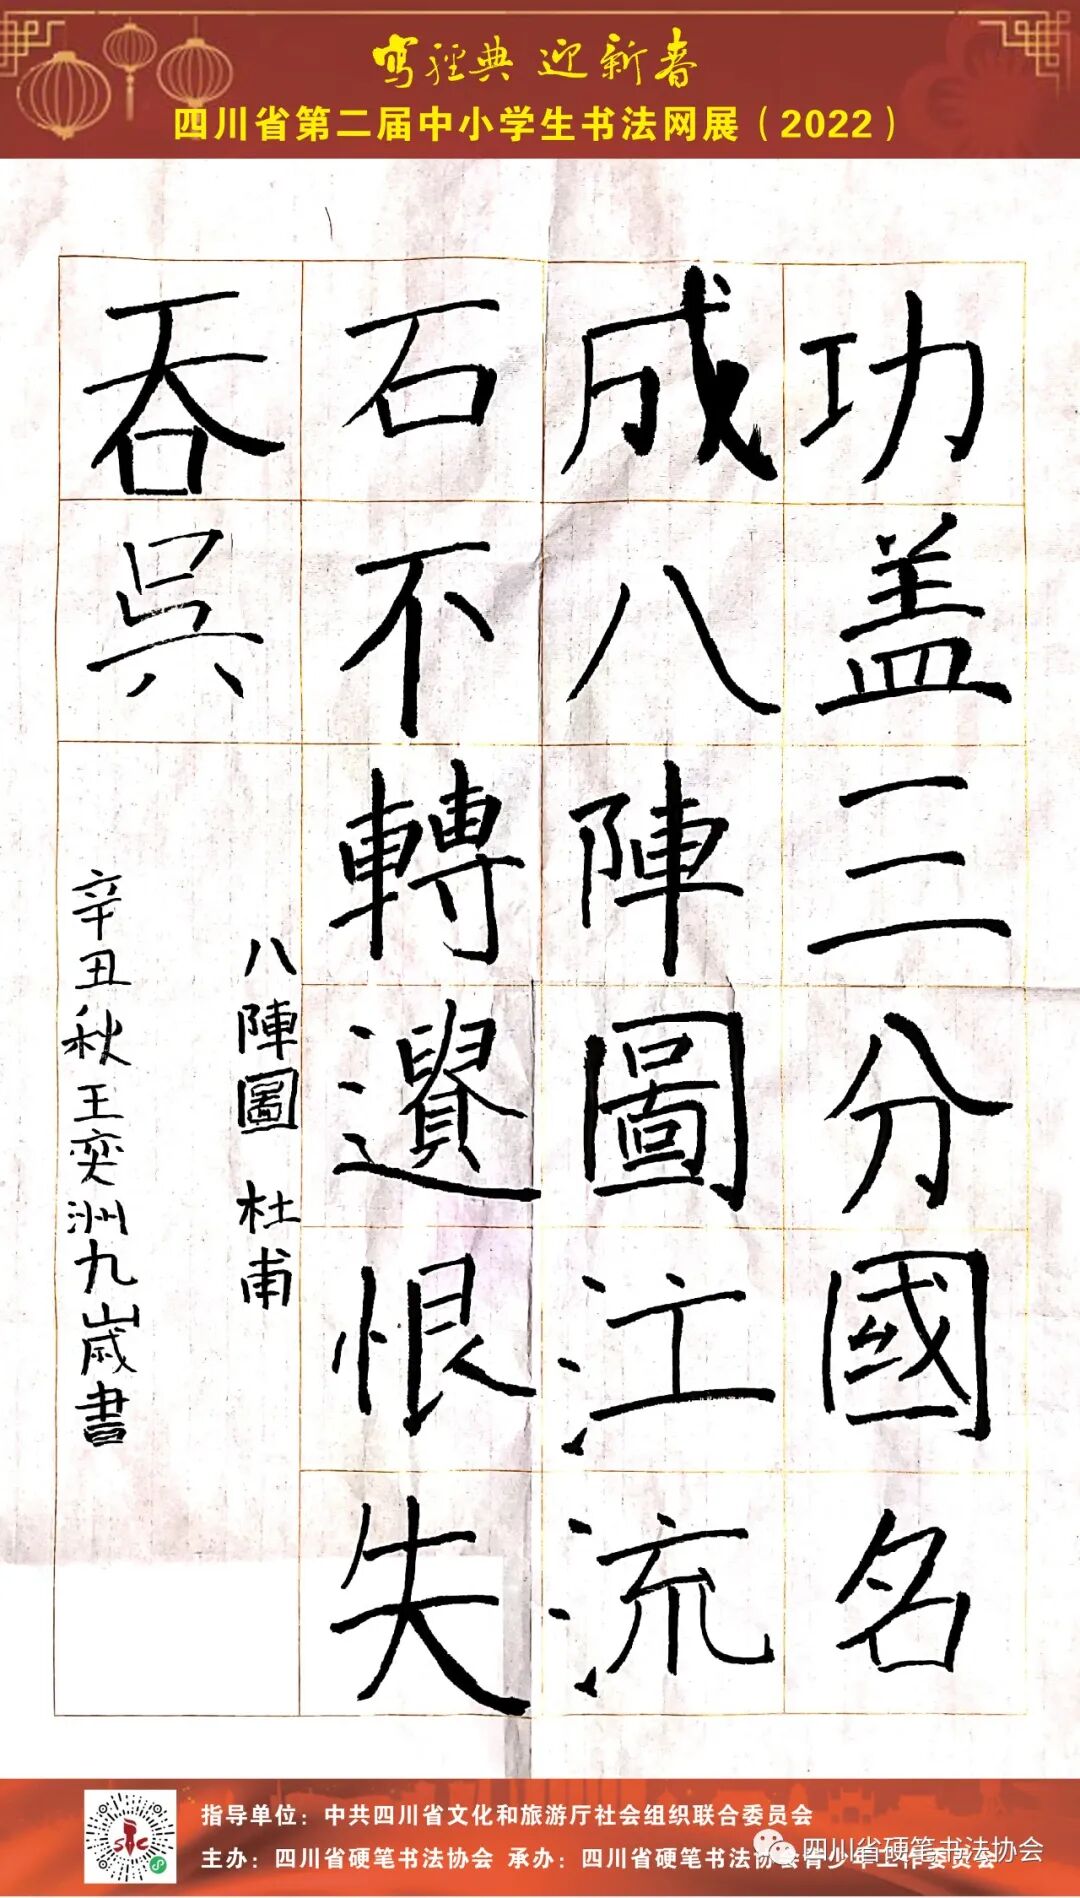 寫經典 迎新春
四川省第二届中小学生书法网展（2022）
功盖三分國名
成八陣圖江流
石不轉遺恨失
吞吳
八陣圖 杜甫
辛丑秋王奕洲九歲書
指导单位：中共四川省文化和旅游厅社会组织联合委员会
主办：四川省硬笔书法协会 承办：四川省硬笔书法协会青少年工作委员会
四川省硬笔书法协会